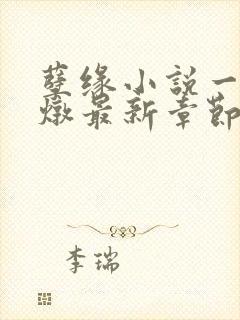 孽缘小说一
燉最新章節
李瑞